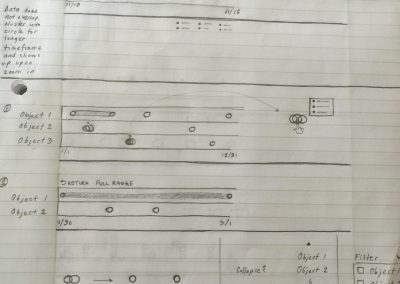 Data does
not overlap,
cluster into
circle for
longer
timeframe
and shows
up upon
zoom in
11/18
①
Object 1
Object 2
Object 3
1/1
12/31
②
RETURN FULL RANGE
Object 1
Object 2
Object 1
Object 2
4/30
5/1
Collapse?
Object 1
Object 2
Filter
Object 1